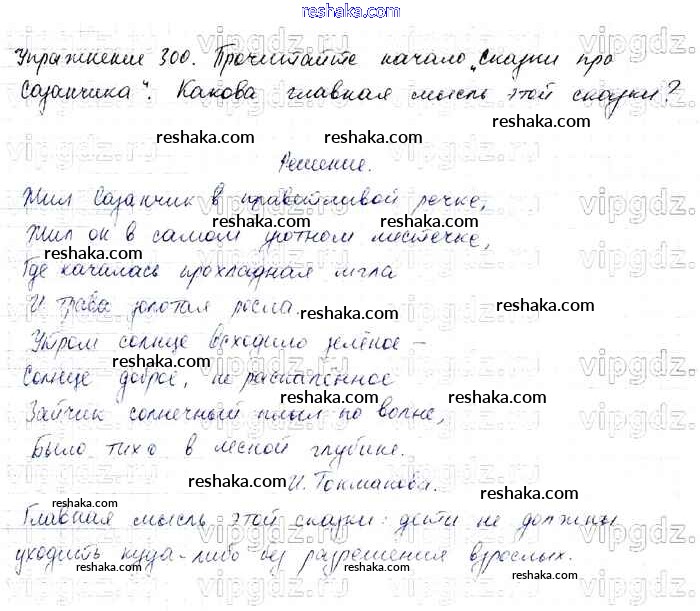 reshaka.com
Упражнение 300. Прочитайте начало „Сказки про
Сазанчика“. Какова главная мысль этой сказки?
reshaka.com reshaka.com
Решение.
Жил Сазанчик в приветливой речке,
reshaka.com reshaka.com
Жил он в самом уютном местечке,
reshaka.com
Где качилась прохладная мгла
reshaka.com
И трава золотая росла.
reshaka.com reshaka.com
Утром солнце всходило зелёное –
reshaka.com reshaka.com
Солнце доброе, не распалённое
reshaka.com reshaka.com
Зайчик солнечный плыл по волне,
Было тихо в лесной глубине.
reshaka.com reshaka.com
И. Токмакова.
reshaka.com reshaka.com
Главная мысль этой сказки: дети не должны
уходить куда-либо без разрешения взрослых.
reshaka.com reshaka.com
vipgdz.ru